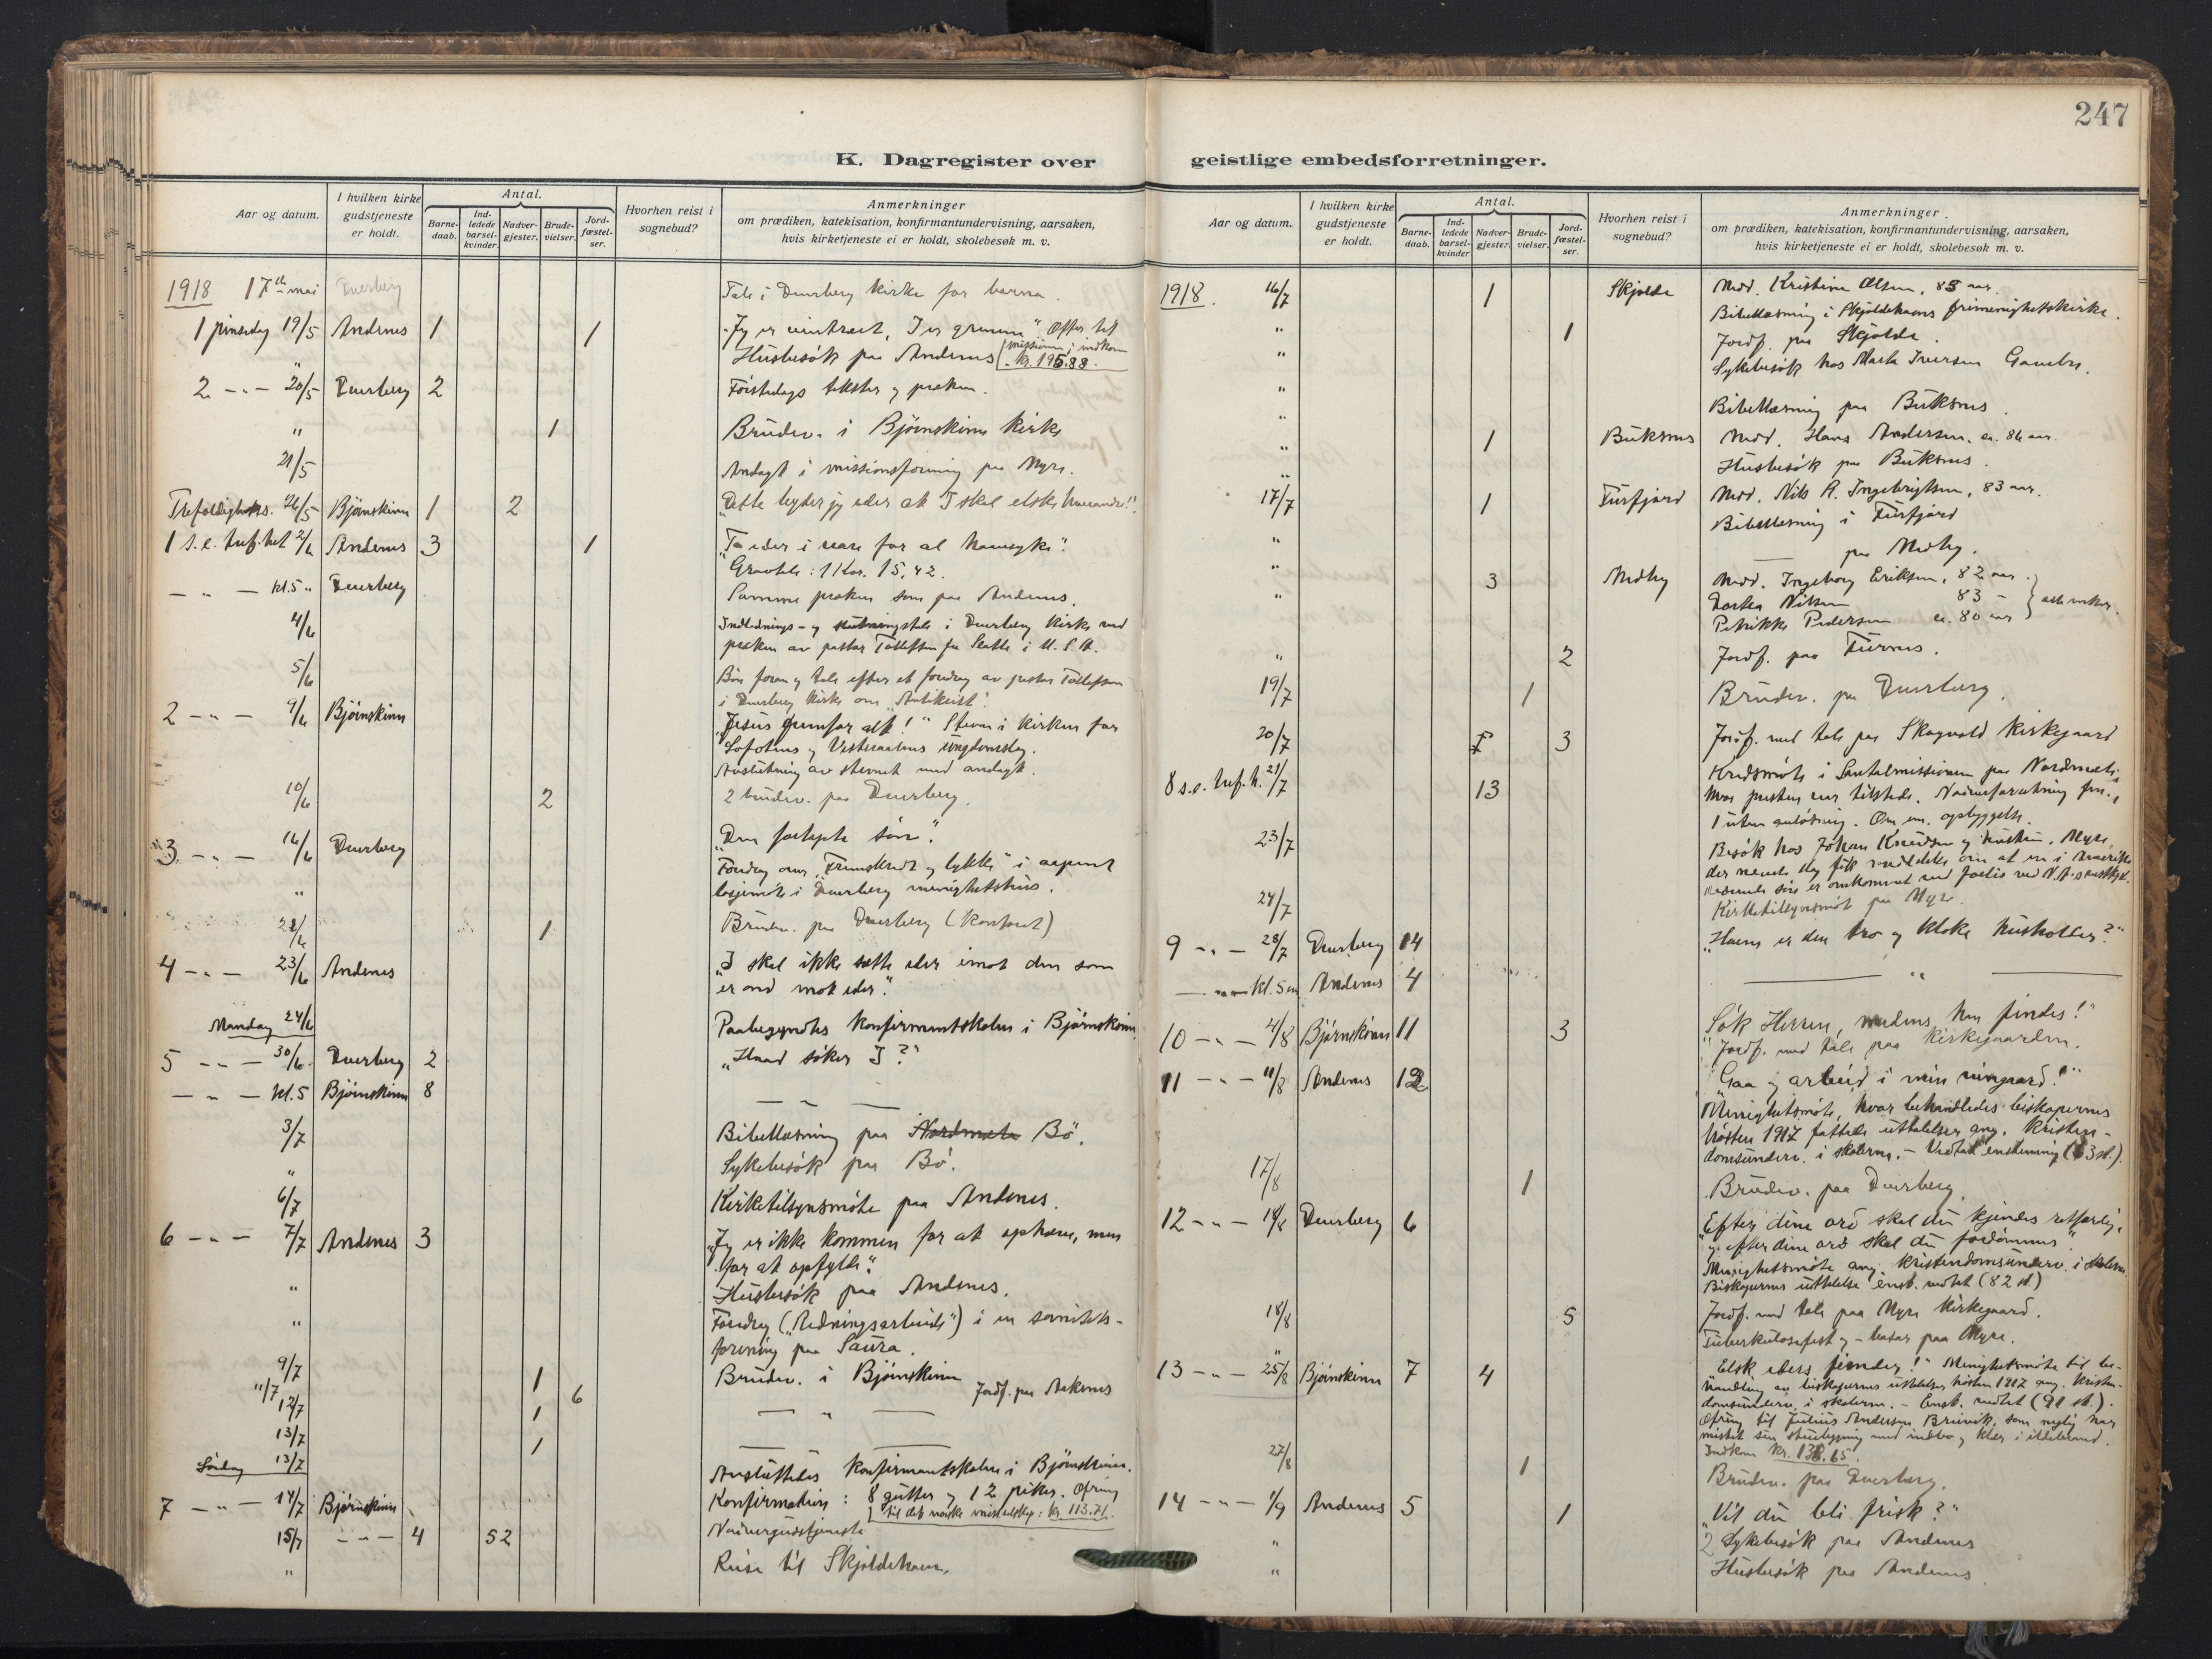 247
K. Dagregister over
Aar og datum.
I hvilken kirke gudstjeneste er holdt.
Antal.
Barne-daab.
Ind-ledede barsel-kvinder.
Nadver-gjester.
Brude-vielser.
Jord-fæstel-ser.
Hvorhen reist i sognebud?
Anmerkninger
om prædiken, katekisation, konfirmantundervisning, aarsaken,
hvis kirketjeneste ei er holdt, skolebesøk m. v.
1918 17de mai Dverberg Tale i Dverberg kirke for barna.
1 pinsedag 19/5 Andenes 1 1 "Jeg er vintræet, I er grenene" Offer til
Husbesök paa Andenes missionen; indkom kr. 195.88.
2 -"- 20/5 Dverberg 2 Förstedags tekster og præken.
" 1 Brudev. i Bjørnskinn kirke
21/5 Andagt i missionsforening paa Myre.
Trefoldighets. 26/5 Bjørnskinn 1 2 "Dette byder jeg eder at I skal elske hverandre!"
1 s. e. tref. het 2/6 Andenes 3 1 "Ta eder i vare for al havesyke".
Gravtale: 1 Kor. 15,42.
-"- kl. 5 " Dverberg Samme præken som paa Andenes.
4/6 Indlednings- og slutningstale i Dverberg kirke ved
præken av pastor Tollefsen fra Seattle i U. S. A.
5/6 Bön foran og tale efter et foredrag av pastor Tollefsen
i Dverberg kirke om "Antikrist".
2 -"- 9/6 Bjørnskinn "Jesus fremfor alt!" Stevne i kirken for
Lofotens og Vesteraalens ungdomslag.
Avslutning av stevnet med andagt.
10/6 2 2 brudev. paa Dverberg.
3 -"- 16/6 Dverberg "Den fortapte sön".
" Foredrag om "Fremskridt og lykke" i aapent
losjemöte i Dverberg menighetshus.
22/6 1 Brudev. paa Dverberg (kontoret)
4 -"- 23/6 Andenes "I skal ikke sætte eder imot den som
er ond mot eder".
Mandag 24/6 Paabegyndtes konfirmantskolen i Bjørnskinn
5 -"- 30/6 Dverberg 2 "Hvad söker I?"
-"- kl. 5 Bjørnskinn 8 -"-
3/7 Bibellæsning paa Nordmela Bö.
" Sykebesök paa Bö.
6/7 Kirketilsynsmöte paa Andenes.
6 -"- 7/7 Andenes 3 "Jeg er ikke kommen for at ophæve, men
for at opfylde".
" Husbesök paa Andenes.
" Foredrag ("Redningsarbeide") i en sanitets-
forening paa Saura.
9/7 1 Brudev. i Bjørnskinn
11/7 6 Jordf. paa Aaknes
12/7 1 -"-
13/7 1 -"-
13/7 Avsluttedes konfirmantskolen i Bjørnskinn.
Söndag
7 -"- 14/7 Bjørnskinn Konfirmation: 8 gutter og 12 piker. Ofring
til det norske misselskap: kr. 113.71.
15/7 -"- 4 52 Nadvergudstjeneste
" Reise til Skjoldehavn.
geistlige embedsforretninger.
Aar og datum.
I hvilken kirke gudstjeneste er holdt.
Antal.
Barne-daab.
Ind-ledede barsel-kvinder
Nadver-gjester.
Brude-vielser.
Jord-fæstel-ser.
Hvorhen reist i sognebud?
Anmerkninger.
om prædiken, katekisation, konfirmantundervisning, aarsaken,
hvis kirketjeneste ei er holdt, skolebesøk m. v.
1918. 16/7 1 Skjolde Nadv. Kristine Olsen, 83 aar.
Bibellæsning i Skjoldehavns frimenighetskirke.
" 1 Jordf. paa Skjolde.
" Sykebesök hos Marta Iversen
" Bibellæsning paa Buksnes.
" 1 Buksnes Nadv. Hans Andersen, ca. 86 aar.
" Husbesök paa Buksnes.
17/7 1 Tufjord Nadv. Nils R. Ingebrigtsen, 83 aar.
Bibellæsning i
" — paa Medby.
" 3 Medby Nadv. Ingeborg Eriksen, 82 aar.
" Dortea Nilsen 83 -
Petrikke Pedersen ca. 80 aar
" 2 Jordf. paa
19/7 1 Brudev. paa Dverberg.
20/7 3 Jordf. med tale paa Skogvold kirkegaard
8 s. e. tref. h. 21/7 13 Kredsmöte i Santalmissionen paa Nordmela,
hvor presten var tilstede. Nadverforretning
1 uten avlösning. Om em. opbyggelse.
23/7 Besök hos Johan Knudsen og hustru, Myre,
der samme dag fik meddelelse om at en i Amerika
værende sön er omkommet ved forlis ved
24/7 Kirketilsynsmöte paa Myre.
9 -"- 28/7 Dverberg 14 "Hvem er den tro og kloke husholder?"
-"- kl. 5 em Andenes 4 -"-
10 -"- 4/8 Bjørnskinn 11 3 "Søk Herren, medens han findes!"
Jordf. med tale paa kirkegaarden.
11 -"- 11/8 Andenes 12 "Gaa og arbeid i min vingaard!"
Menighetsmöte, hvor behandledes biskopernes
hösten 1917 fattede uttalelser ang. kristen-
domsunderv. i skolerne. - Vedtat enstemmig (63 st.).
17/8 1 Brudev. paa Dverberg.
12 -"- 18/8 Dverberg 6 "Efter dine ord skal du kjendes retfærdig,
og efter dine ord skal du fordömmes".
Menighetsmöte ang. kristendomsunderv. i skolerne.
Biskopernes uttalelse enst. vedtat (82 st.)
18/8 5 Jordf. med tale paa Myre kirkegaard.
" Tuberkulosefest og -basar paa Myre.
13 -"- 25/8 Bjørnskinn 7 4 "Elsk eders fiender!" Menighetsmöte til be-
handling av biskopernes uttalelser hösten 1917 ang. kristen-
domsunderv. i skolerne. - Enst. vedtat (91 st.).
Ofring til Julius Andersen, Breivik, som nylig har
mistet sin stuebygning med indbo og klær i ildebrand.
Indkom kr. 138.65.
27/8 1 Brudev. paa Dverberg.
14 -"- 1/9 Andenes 5 1 "Vil du bli frisk?"
" 2 Sykebesök paa Andenes
" Husbesök paa Andenes